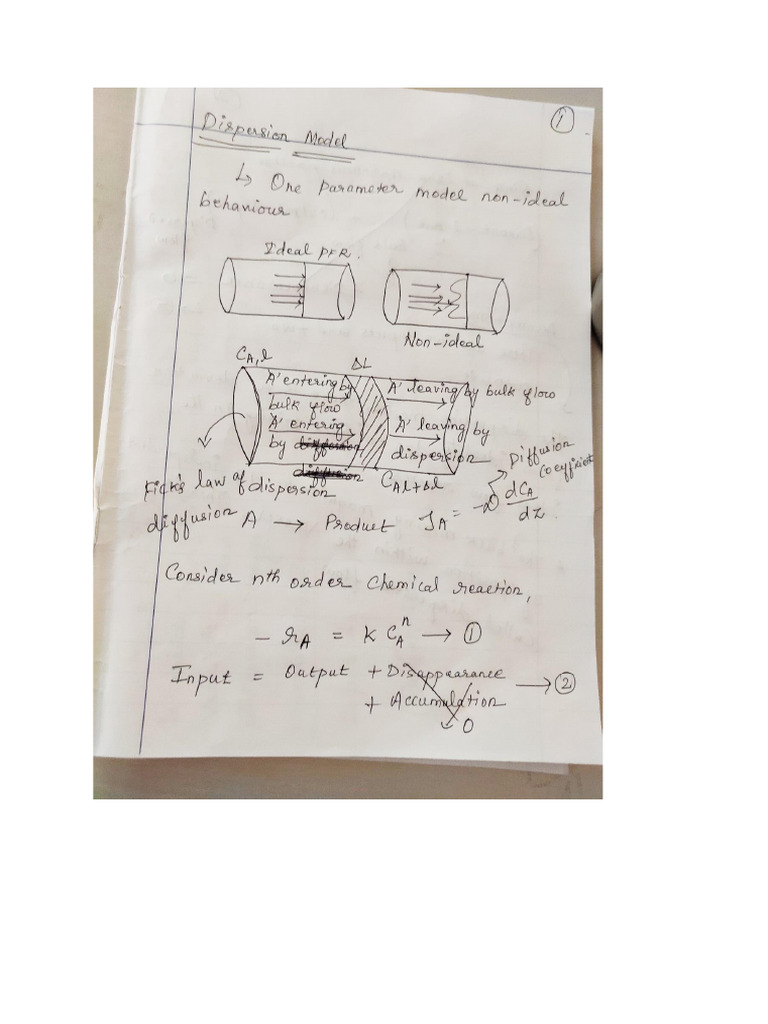 ①
Dispersion Model
↳ One parameter model non-ideal
behaviour
Ideal PFR.
Non-ideal
CA,l
ΔL
A' entering by
bulk flow
A' entering
by
A' leaving by bulk flow
A' leaving by
dispersion
CAl+Δl
Fick's law of dispersion
diffusion
A → Product
JA = -D dCA/dz.
Diffusion
coefficient
Consider nth order chemical reaction,
- rA = K CA^n → ①
Input = Output + Disappearance
+ Accumulation → ②
0